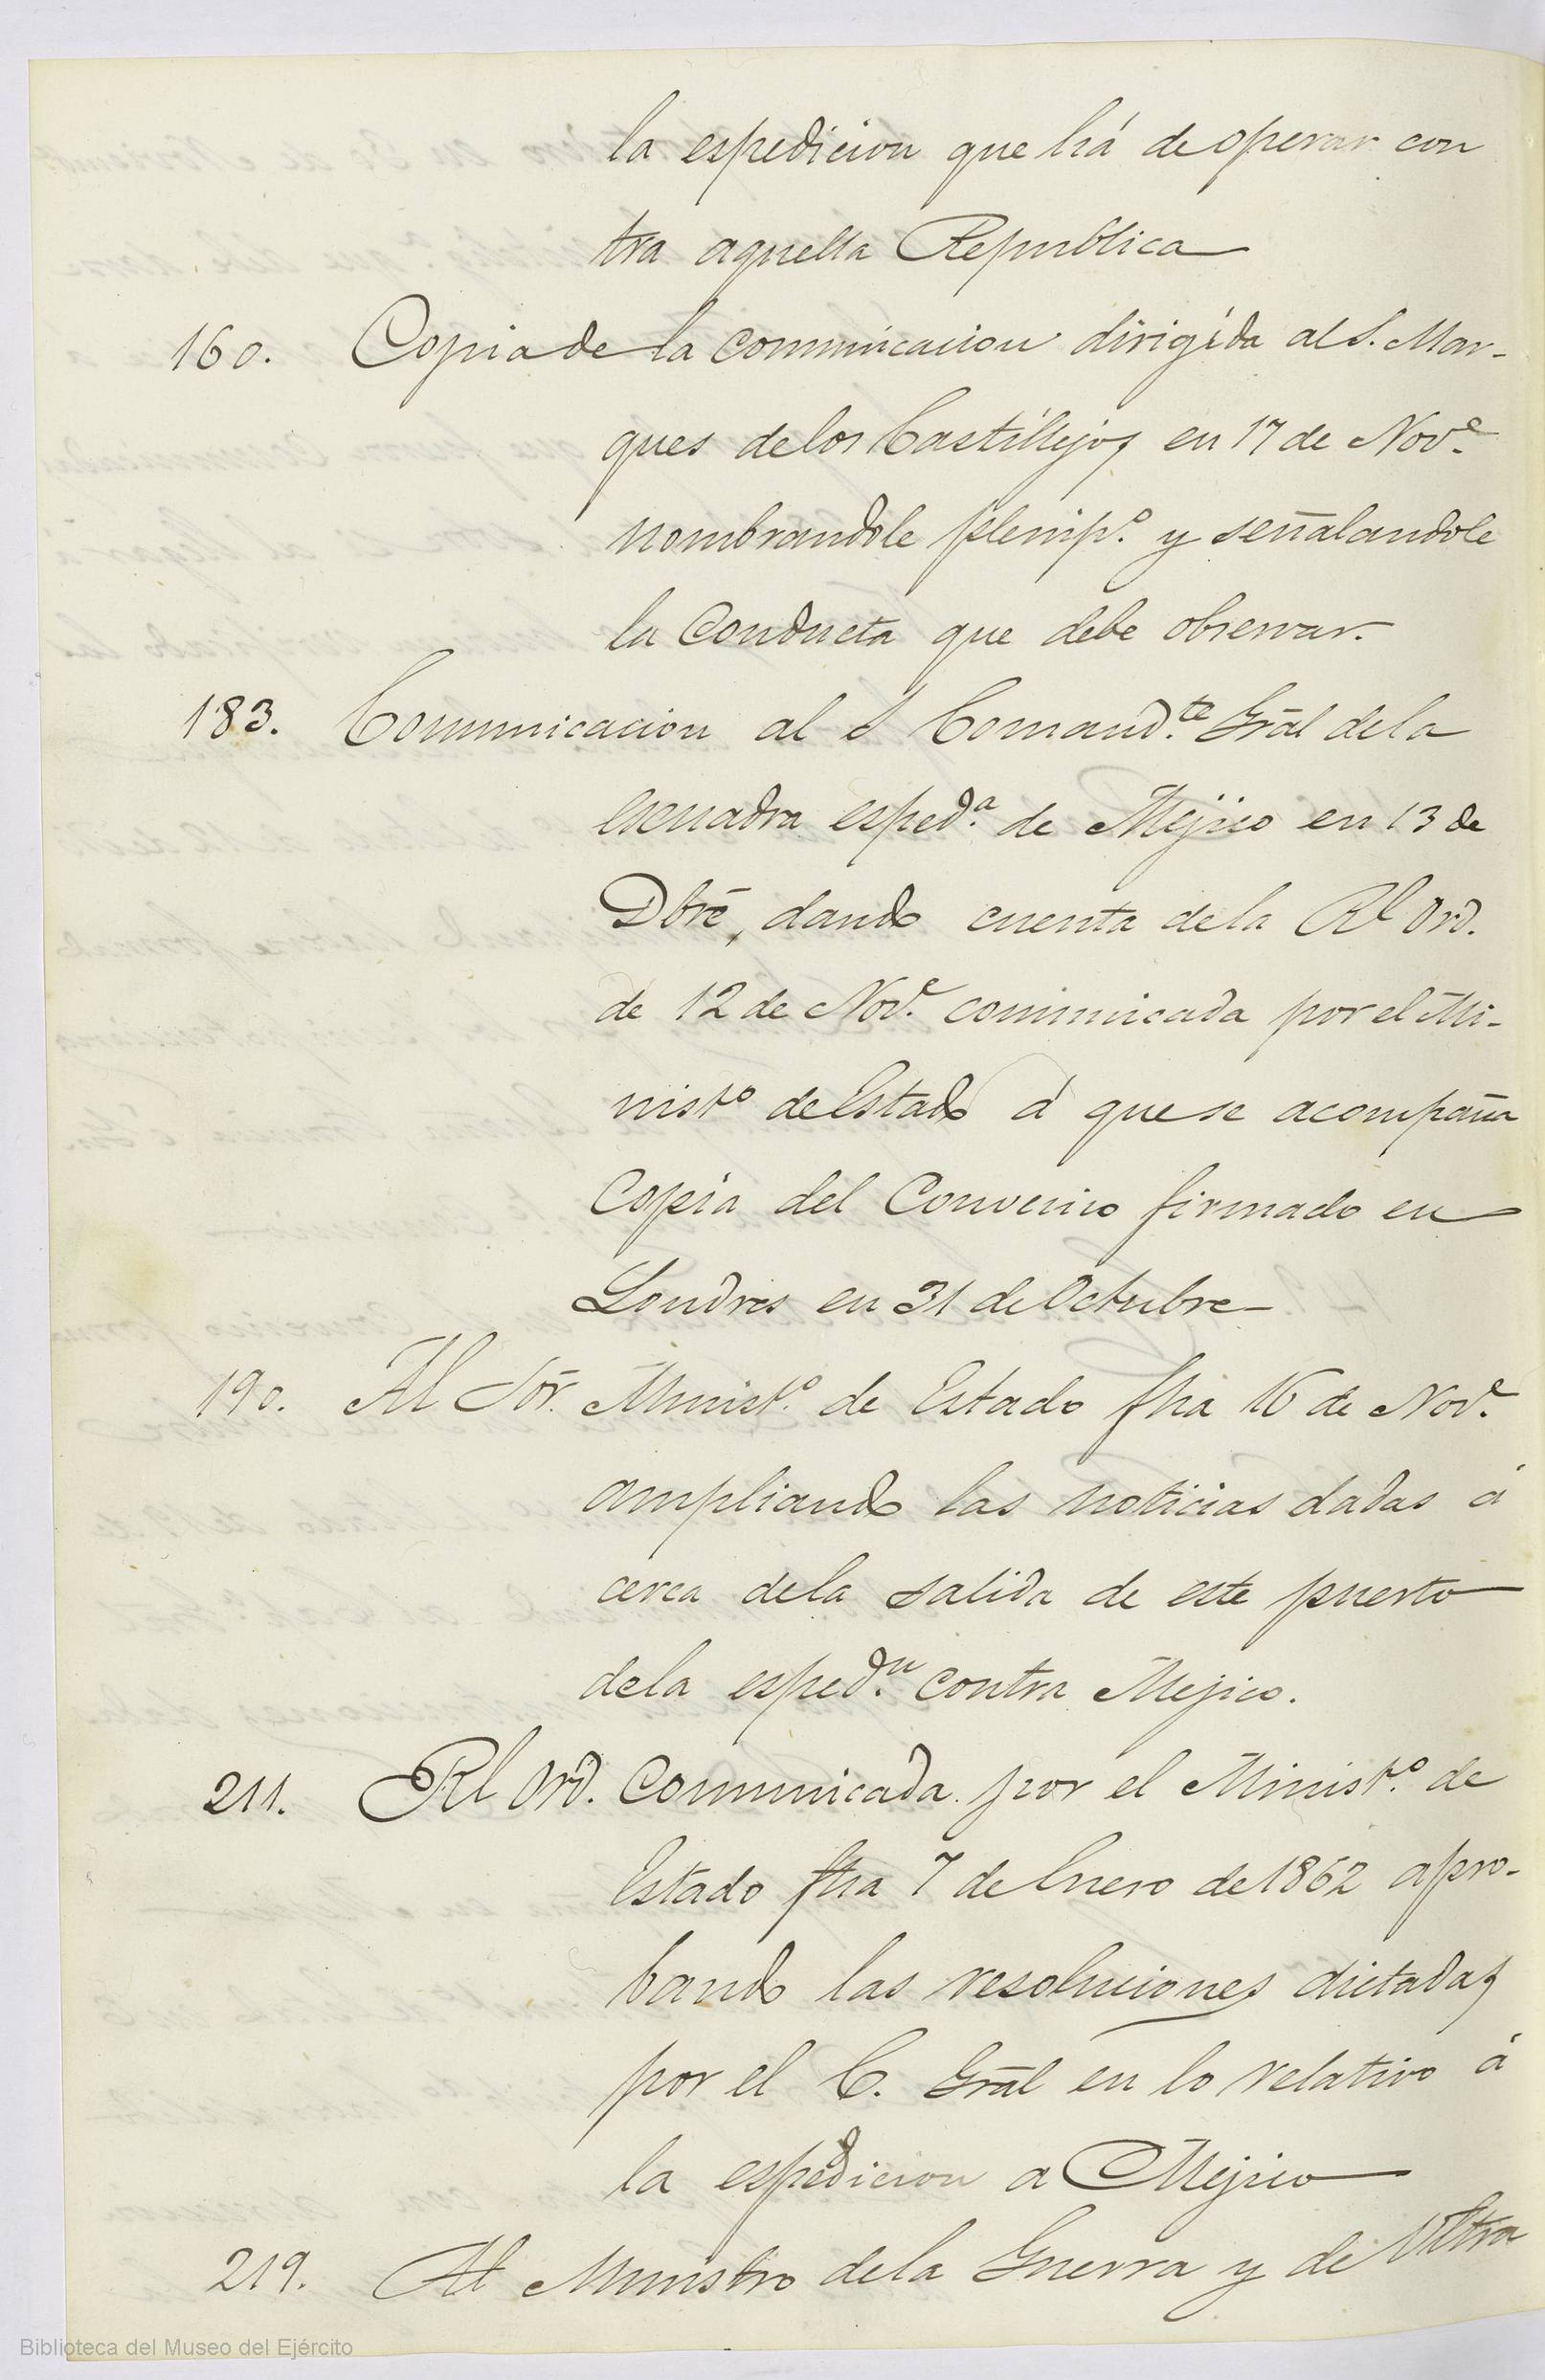 la espedicion que há de operar con
tra aquella Republica
160. Copia de la comunicacion dirigida al S. Mar-
ques de los Castillejos en 17 de Nov.e
nombrandole plenip.o y señalandole
la Conducta que debe observar.
183. Comunicacion al S Comand.te Gral de la
escuadra esped.a de Mejico en 13 de
Dbre, dando cuenta de la Rl Ord.
de 12 de Nov.e comunicada por el Mi-
nist.o de Estado á que se acompaña
Copia del Convenio firmado en
Londres en 31 de Octubre
190. Al Sor. Minist.o de Estado fha 16 de Nov.e
ampliando las noticias dadas á
cerca de la salida de este puerto
de la esped.n contra Mejico.
211. Rl Ord. Comunicada por el Minist.o de
Estado fha 7 de Enero de 1862 apro-
bando las resoluciones dictadas
por el C. Gral en lo relativo á
la espedicion a Mejico
219. Al Ministro de la Guerra y de Ultra
Biblioteca del Museo del Ejército